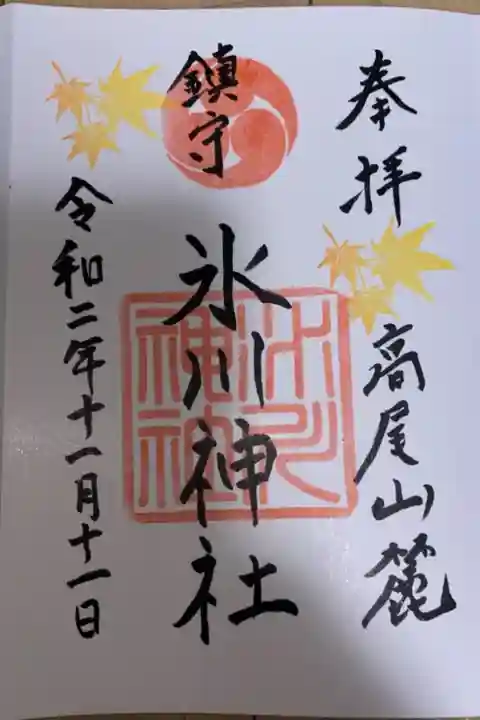 奉拝
高尾山麓
鎮守
氷川神社
氷川神社
令和二年十一月十一日